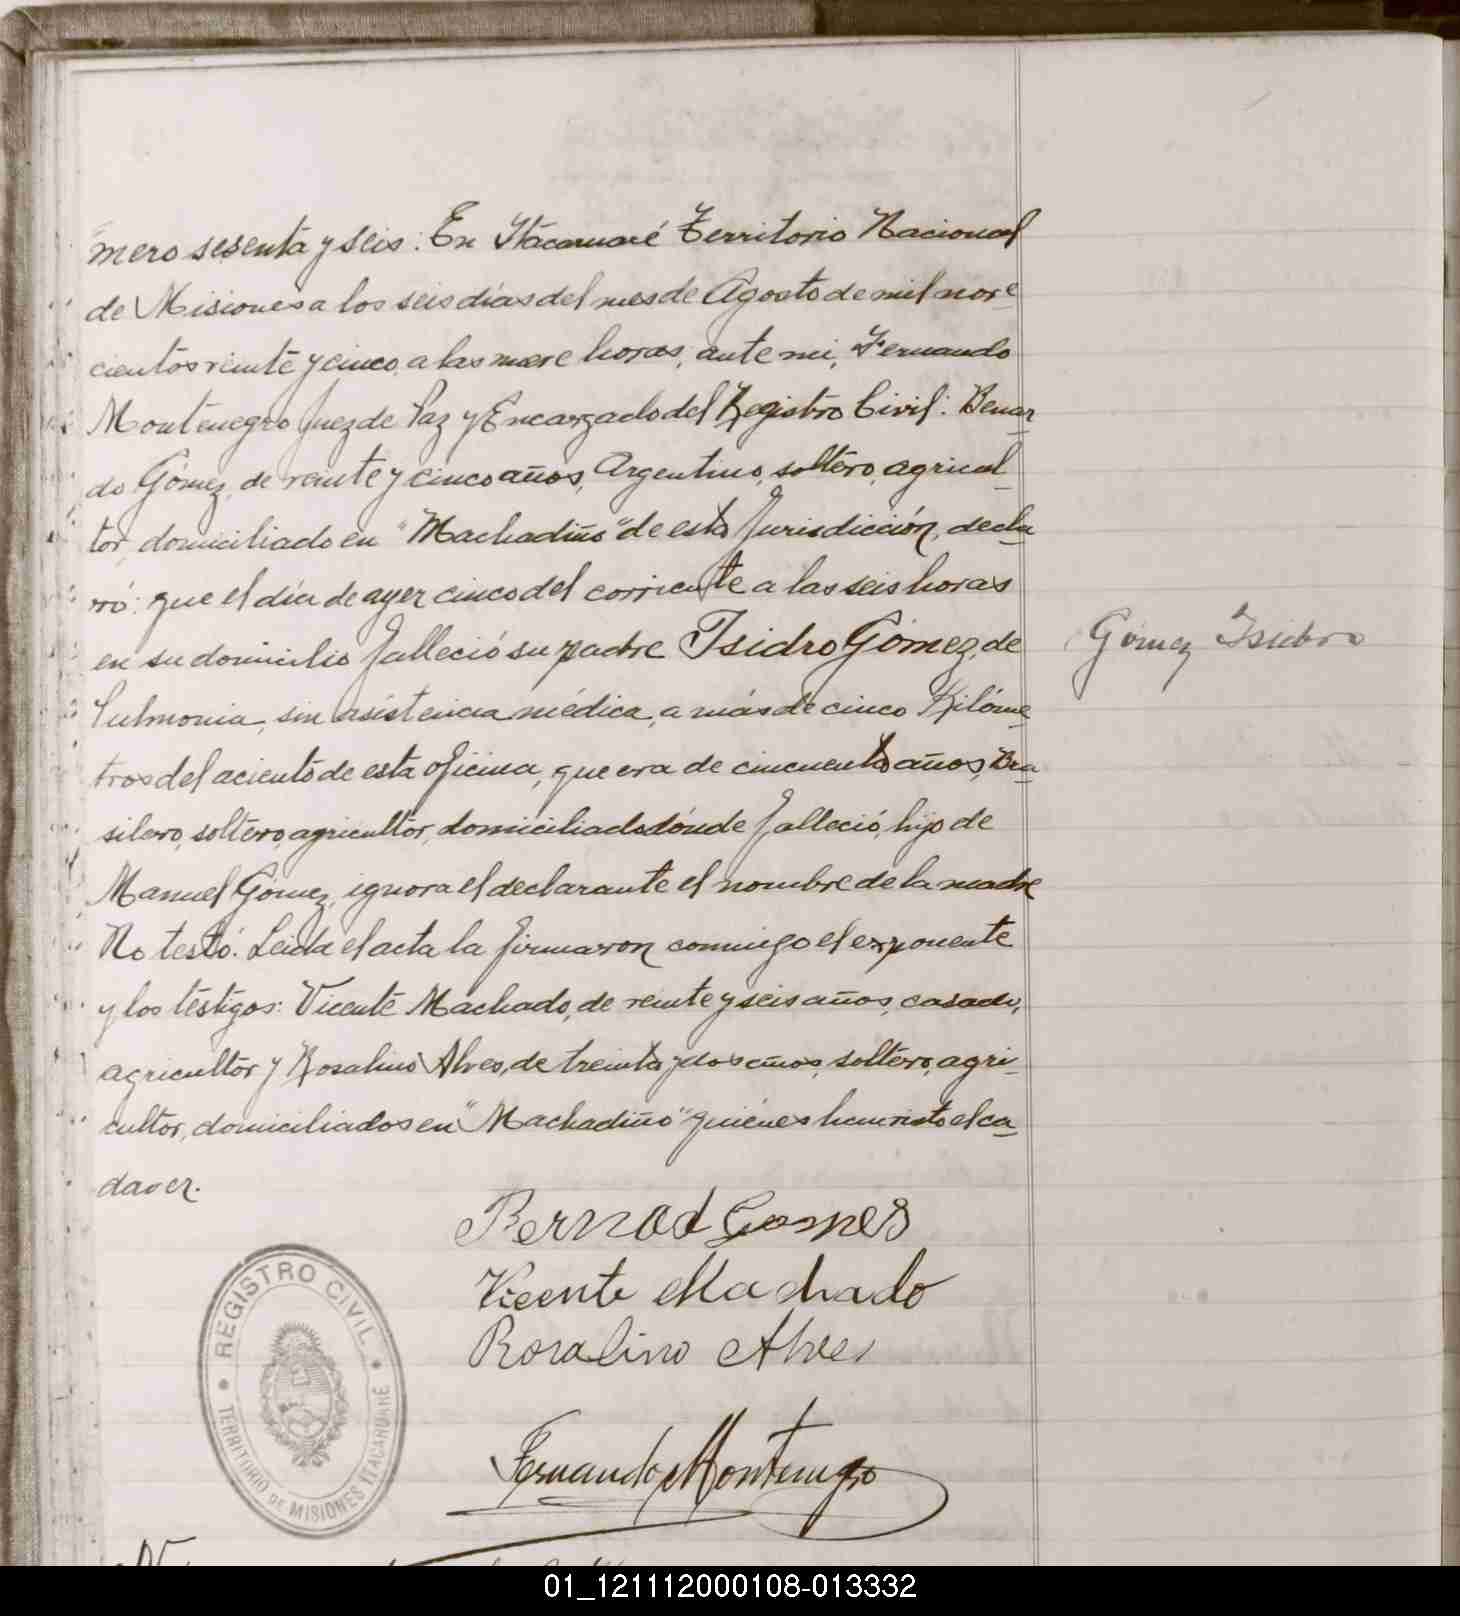 mero sesenta y seis: En Itacaruaré Territorio Nacional
de Misiones a los seis días del mes de Agosto de mil nove
cientos veinte y cinco, a las nueve horas, ante mi, Fernando
Montenegro Juez de Paz y Encargado del Registro Civil: Benar
do Gómez, de veinte y cinco años, Argentino, soltero, agricul
tor, domiciliado en "Machadiño" de esta Jurisdicción, decla
ró: que el día de ayer cinco del corriente a las seis horas
en su domicilio falleció su padre Isidro Gómez, de
Gómez Isidro
Pulmonia, sin asistencia médica, a más de cinco Kilóme
tros del aciento de esta oficina, que era de cincuenta años, Bra
silero, soltero, agricultor, domiciliado dónde falleció, hijo de
Manuel Gómez, ignora el declarante el nombre de la madre
No testó. Leida el acta la firmaron conmigo el exponente
y los testigos: Vicente Machado, de veinte y seis años, casado,
agricultor y Rosalino Alves, de treinta y dos años, soltero, agri
cultor, domiciliados en "Machadiño" quiénes han visto el ca
daver.
Bernod Gomes
Vicente Machado
Rosalino Alves
Fernando Montenegro
REGISTRO CIVIL
TERRITORIO DE MISIONES ITACARUARE
01_121112000108-013332